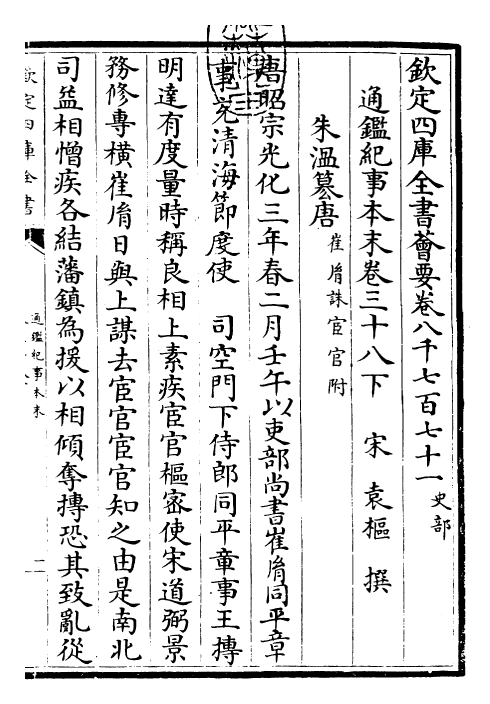 欽定四庫全書薈要卷八千七百七十一 史部
通鑑紀事本末卷三十八下 宋 袁樞 撰
朱溫簒唐 崔𦙍誅宦官附
唐昭宗光化三年春二月壬午以吏部尚書崔𦙍同平章
事充清海節度使 司空門下侍郎同平章事王摶
明達有度量時稱良相上素疾宦官樞宻使宋道弼景
務修專橫崔𦙍日與上謀去宦官宦官知之由是南北
司益相憎疾各結藩鎮為援以相傾奪摶恐其致亂從
欽定四庫全書
通鑑紀事本末